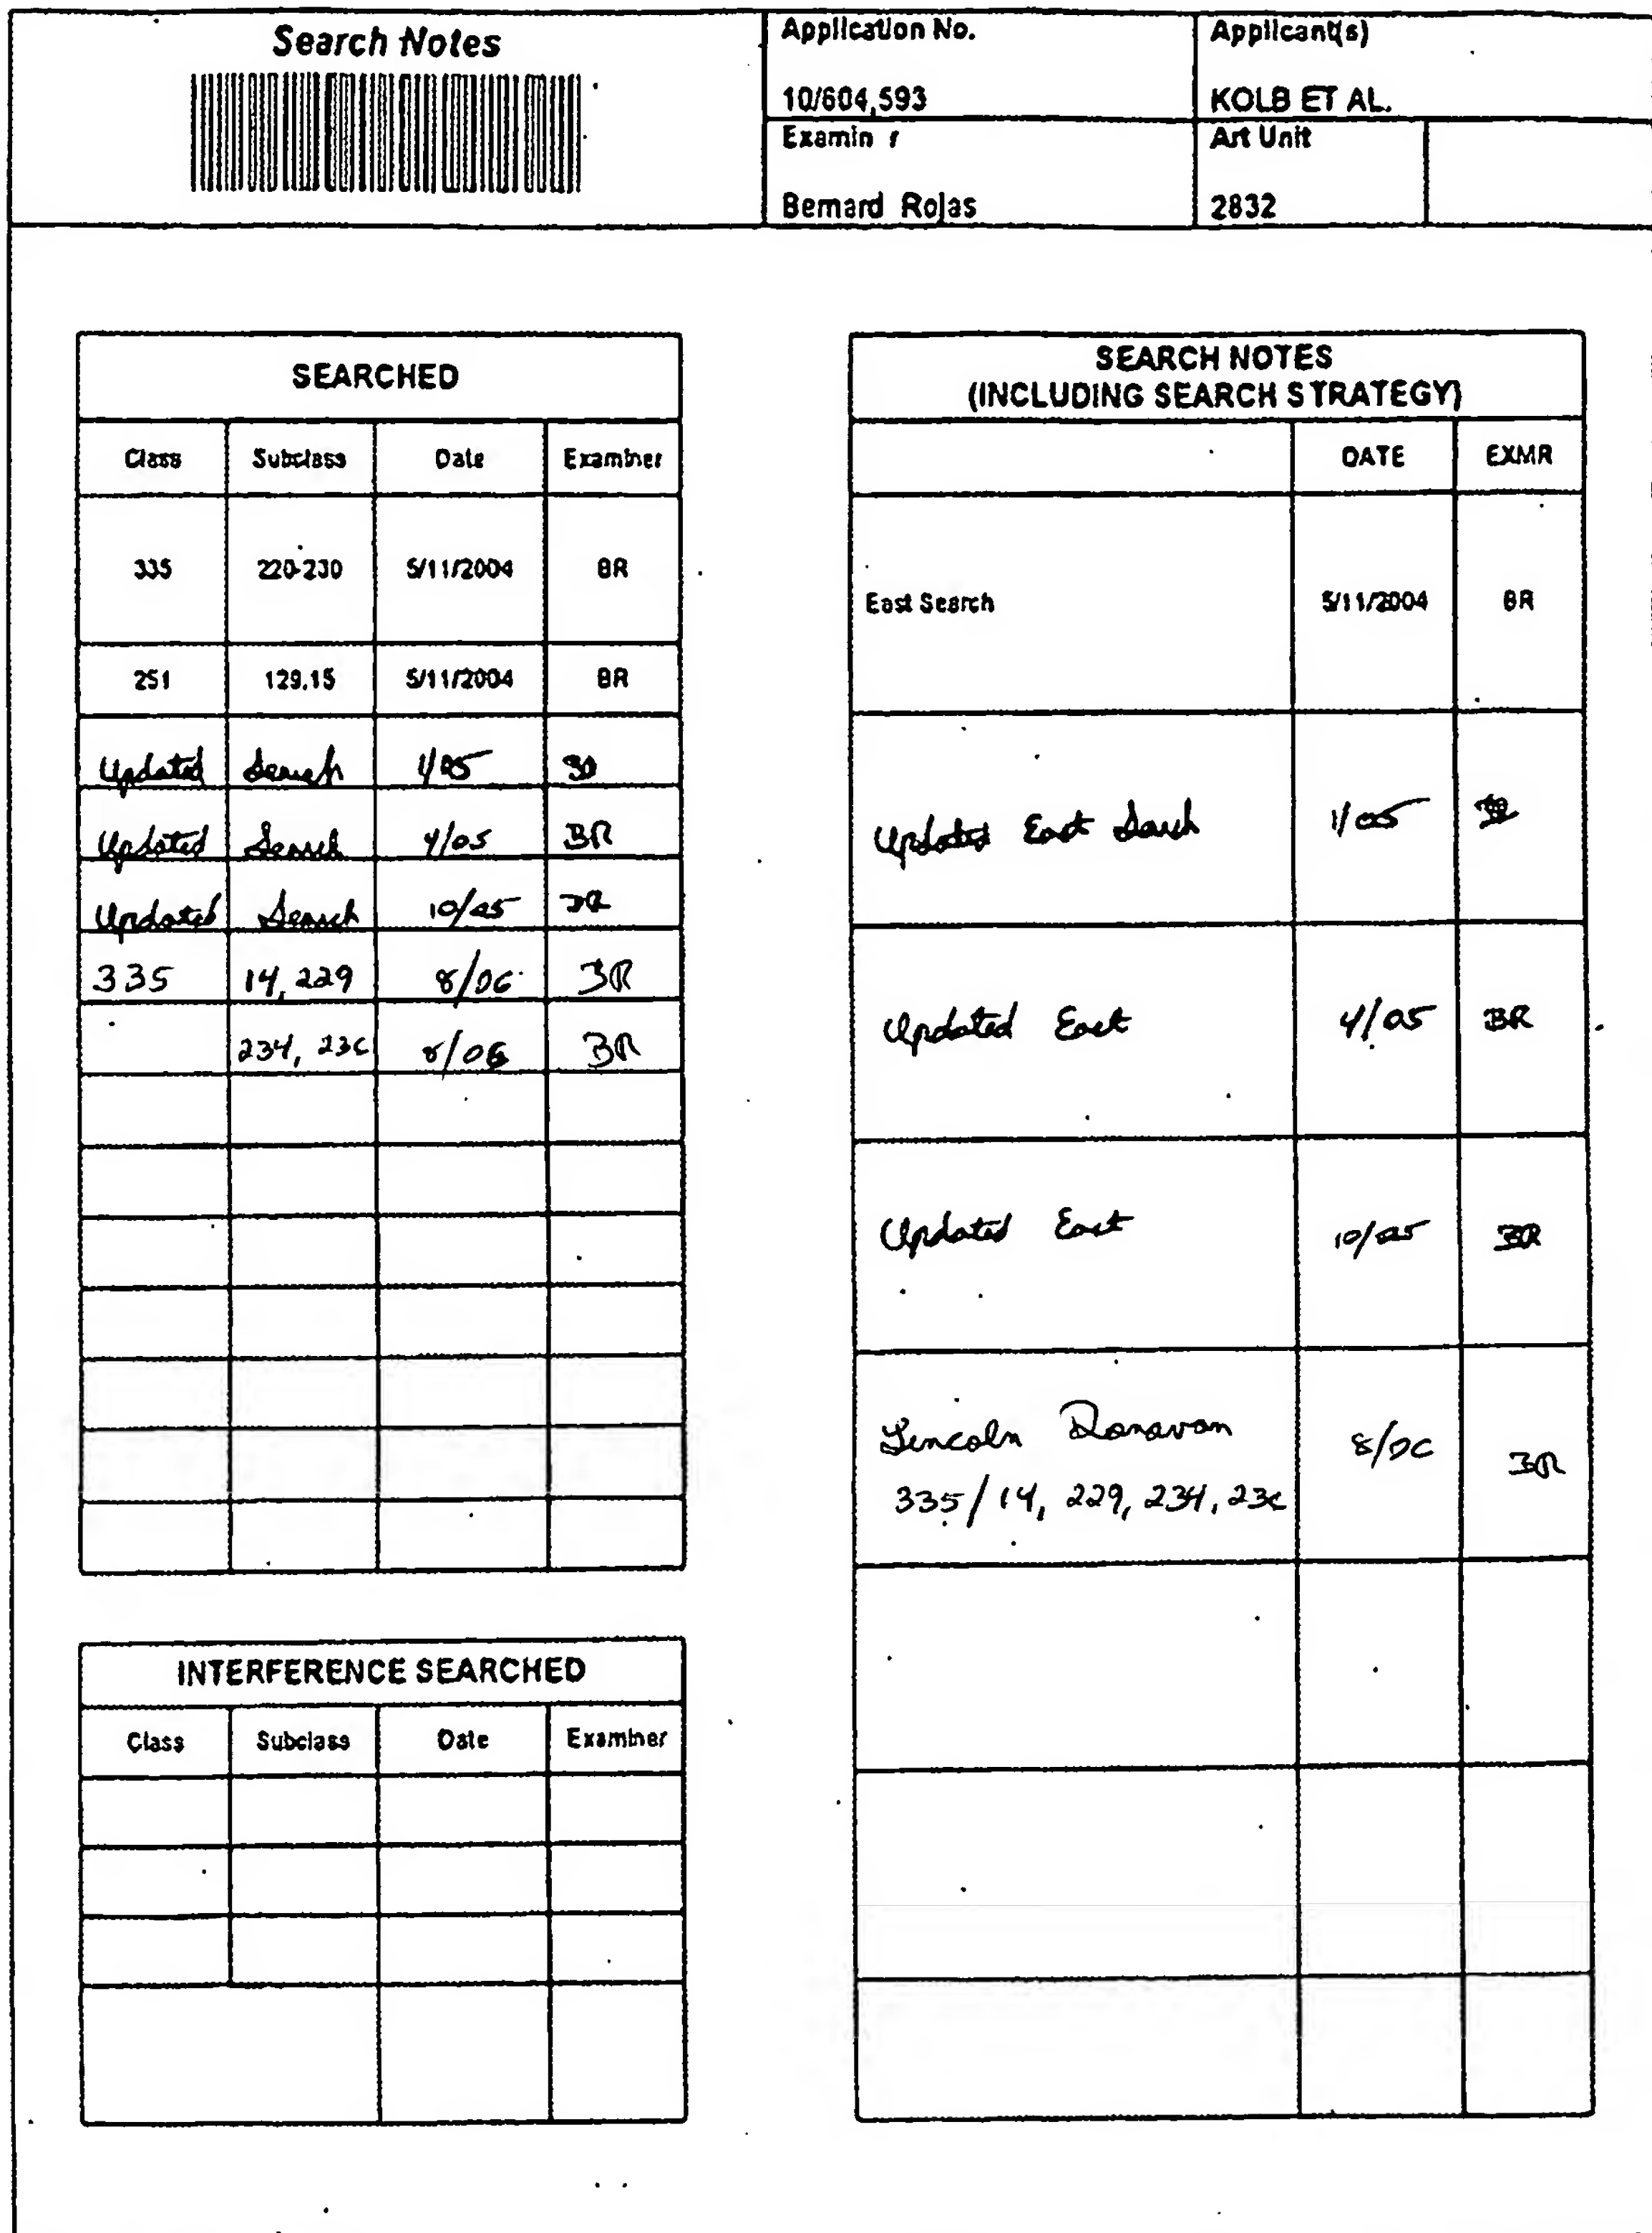 Search Notes
Application No.
10/604,593
Applicant(s)
KOLB ET AL.
Examin r
Bernard Rojas
Art Unit
2832
SEARCHED
Class Subclass Date Examiner
335 220-230 5/11/2004 BR
251 129.15 5/11/2004 BR
Updated Search 1/05
Updated Search 4/05 BR
Updated Search 10/05 BR
335 14, 229 8/06 BR
234, 236 8/06 BR
INTERFERENCE SEARCHED
Class Subclass Date Examiner
SEARCH NOTES
(INCLUDING SEARCH STRATEGY)
DATE EXMR
East Search 5/11/2004 BR
Updated East Search 1/05
Updated East 4/05 BR
Updated East 10/05 BR
Lincoln Donavan 8/06 BR
335/14, 229, 234, 236